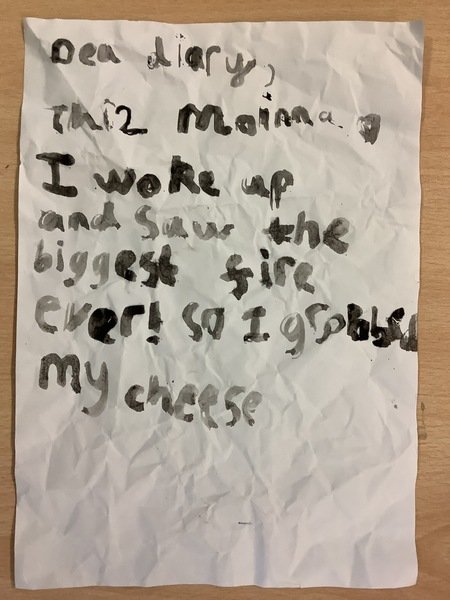 Dea diary,
This Moinna g
I woke up
and Saw the
biggest fire
ever! so I grabbed
my cheese